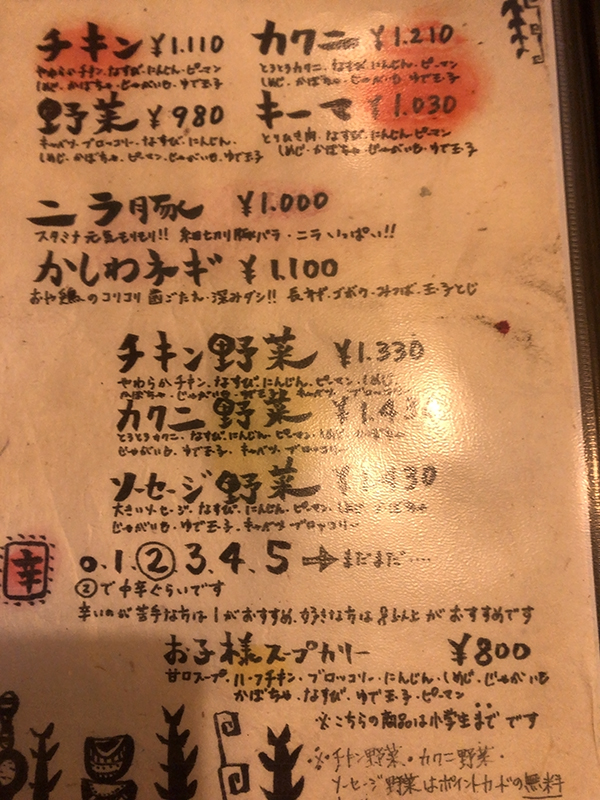 チキン ¥1.110
やわらかチキン.なすび.にんじん.ピーマン
しめじ.かぼちゃ.じゃがいも.ゆで玉子
カクニ ¥1.210
とろとろカクニ.なすび.にんじん.ピーマン
しめじ.かぼちゃ.じゃがいも.ゆで玉子
野菜 ¥980
キャベツ.ブロッコリー.なすび.にんじん.
しめじ.かぼちゃ.ピーマン.じゃがいも.ゆで玉子
キーマ ¥1.030
とりひき肉.なすび.にんじん.ピーマン
しめじ.かぼちゃ.じゃがいも.ゆで玉子
ニラ豚 ¥1.000
スタミナ元気もりもり!! 細切り豚バラ・ニラいっぱい!!
かしわネギ ¥1.100
おや鶏のコリコリ歯ごたえ.深みダシ!! 長ネギ.ゴボウ.みつば.玉子とじ
チキン野菜 ¥1.330
やわらかチキン.なすび.にんじん.ピーマン.しめじ.
かぼちゃ.じゃがいも.ゆで玉子.キャベツ.ブロッコリー
カクニ野菜 ¥1.43
とろとろカクニ.なすび.にんじん.ピーマン.しめじ.かぼちゃ
じゃがいも.ゆで玉子.キャベツ.ブロッコリー
ソーセージ野菜 ¥1.430
大きいソーセージ.なすび.にんじん.ピーマン.しめじ.かぼちゃ
じゃがいも.ゆで玉子.キャベツ.ブロッコリー
辛 0.1.②.3.4.5 → まだまだ‥‥
②で中辛ぐらいです
辛いのが苦手な方は1がおすすめ.好きな方は以上がおすすめです
お子様スープカリー ¥800
甘口スープ.ハーフチキン・ブロッコリー・にんじん.しめじ.じゃがいも
かぼちゃ.なすび.ゆで玉子・ピーマン
※こちらの商品は小学生までです
※チキン野菜・カクニ野菜・
ソーセージ野菜はポイントカードの無料